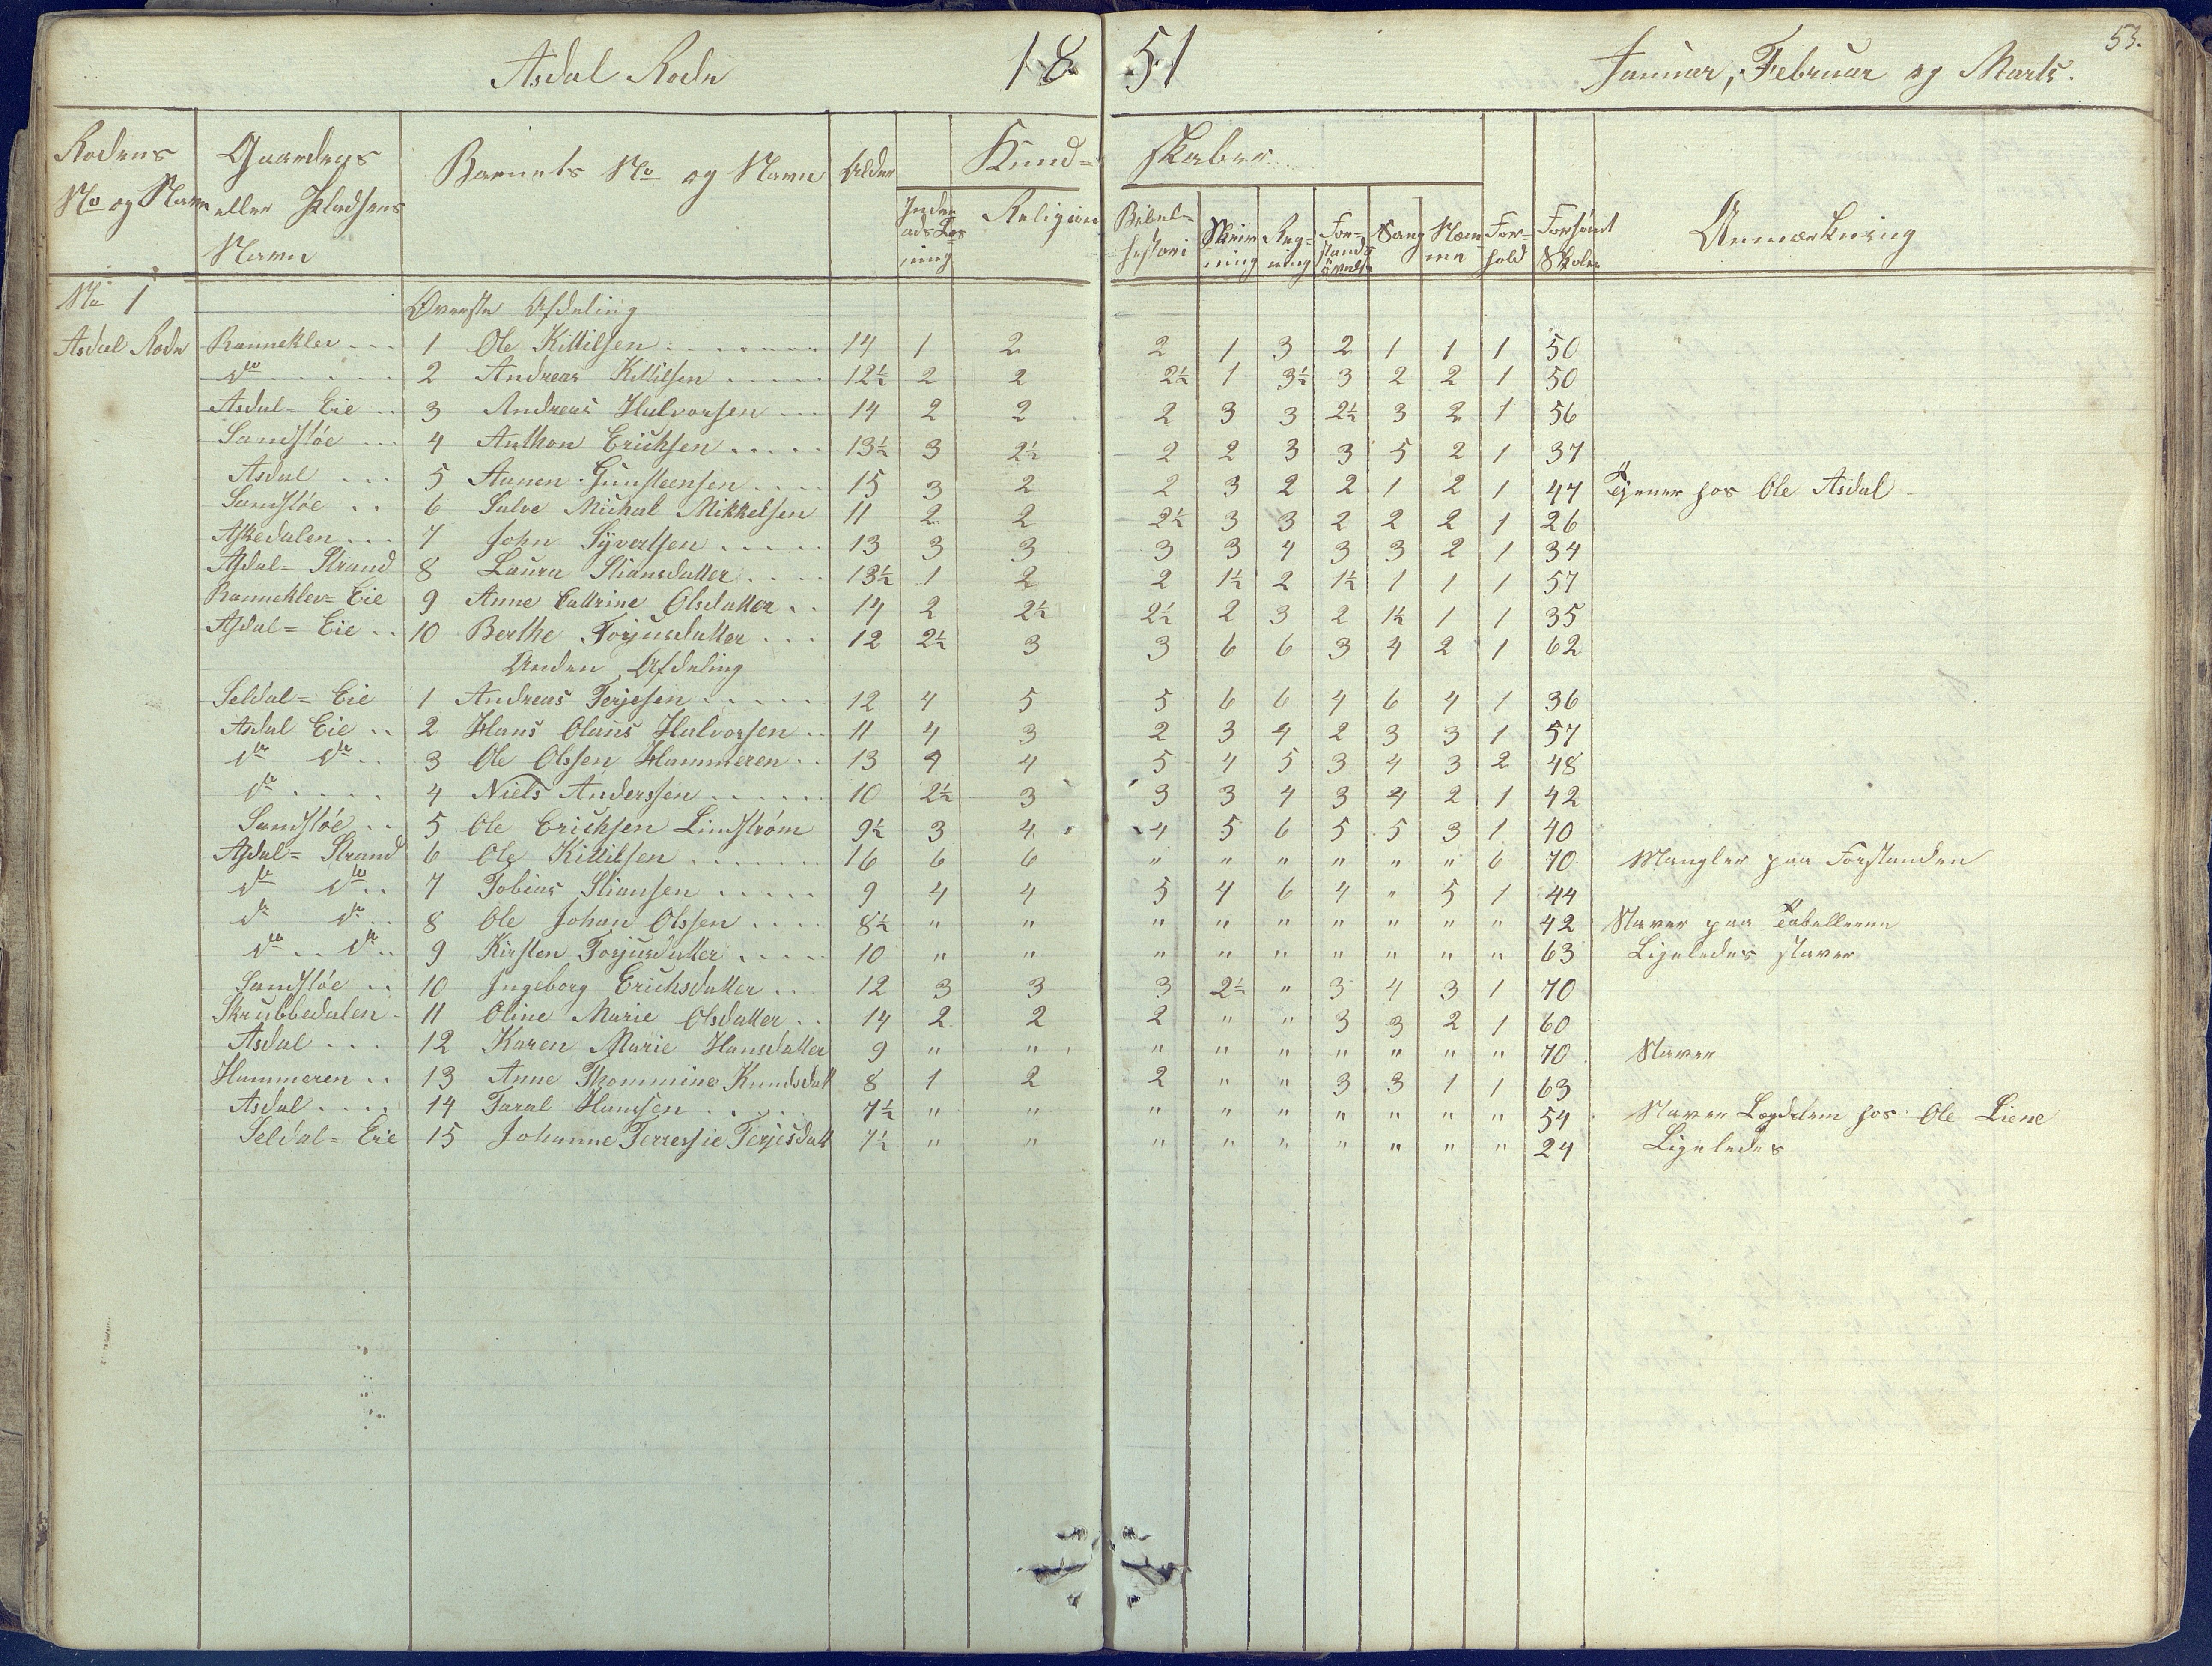 53.
Asdal Rode 1851 Januar, Februar og Marts.
Rodens No og Navn | Gaardens eller Pladsens Navn | Barnets No og Navn | Alder | Kundskaber | Forhold | Forsømt Skolen | Anmærkning
Indenads Læsning | Religion | Bibelhistori | Skrivning | Regning | Forstandsøvelse | Sang | Nemme
No 1 Øverste Afdeling
Asdal Rode Rannekler ... 1 Ole Kittilsen 14 1 2 2 1 3 2 1 1 1 50
do 2 Andreas Kittilsen 12½ 2 2 2½ 1 3½ 3 2 2 1 50
Asdal=Eie .. 3 Andreas Halvorsen 14 2 2 2 3 3 2½ 3 2 1 56
Sandsløe ... 4 Anthon Erichsen 13½ 3 2½ 2 2 3 3 5 2 1 37
Asdal ... 5 Aanen Gunsteensen 15 3 2 2 3 2 2 1 2 1 47 Tjener hos Ole Asdal
Sandsløe .. 6 Salve Michal Mikkelsen 11 2 2 2½ 3 3 2 2 2 1 26
Askedalen ... 7 John Syvertsen 13 3 3 3 3 4 3 3 2 1 34
Asdal=Strand 8 Laura Stiansdatter 13½ 1 2 2 1½ 2 1½ 1 1 1 57
Rannekler=Eie 9 Anne Cattrine Olsdatter .. 14 2 2½ 2½ 2 3 2 1½ 1 1 35
Asdal=Eie .. 10 Berthe Torjusdatter ... 12 2½ 3 3 6 6 3 4 2 1 62
Anden Afdeling
Seldal=Eie 1 Andreas Terjesen 12 4 5 5 6 6 4 6 4 1 36
Asdal Eie .. 2 Hans Olaus Halvorsen .. 11 4 3 2 3 4 2 3 3 1 57
do do .. 3 Ole Olssen Hammeren .. 13 4 4 5 4 5 3 4 3 2 48
do 4 Niels Anderssen 10 2½ 3 3 3 4 3 4 2 1 42
Sandsløe .. 5 Ole Erichsen Lindstrøm 9½ 3 4 4 5 6 5 5 3 1 40
Asdal=Strand 6 Ole Kittilsen 16 6 6 " " " " " " 6 70 Mangler paa Forstanden
do do .. 7 Tobias Stiansen 9 4 4 5 4 6 4 " 5 1 44
do do .. 8 Ole Johan Olssen 8½ " " " " " " " " " 42 Staver paa Tabellerne
do .. do .. 9 Kirsten Torjusdatter 10 " " " " " " " " " 63 Ligeledes staver
Sandsløe .. 10 Ingeborg Erichsdatter .. 12 3 3 3 2½ " 3 4 3 1 70
Skrubbedalen 11 Oline Marie Olsdatter .. 14 2 2 2 " " 3 3 2 1 60
Asdal ... 12 Karen Marie Hansdatter 9 " " " " " " " " " 70 Staver
Hammeren .. 13 Anne Thommine Knudsdatt 8 1 2 2 " " 3 3 1 1 63
Asdal .... 14 Taral Hanssen 7½ " " " " " " " " " 54 Staver Lægdslem hos Ole Liene
Seldal=Eie 15 Johanne Terressie Terjesdatt 7½ " " " " " " " " " 24 Ligeledes